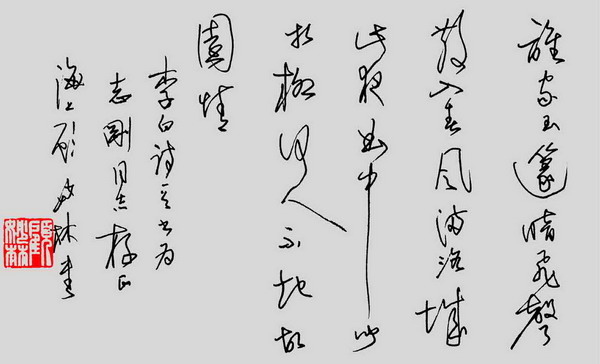 誰家玉篴暗飛聲
散入春风滿洛城
此夜曲中聞
折柳何人不起故
園情
李白詩书为
志剛同志存正
海上顾妙林书